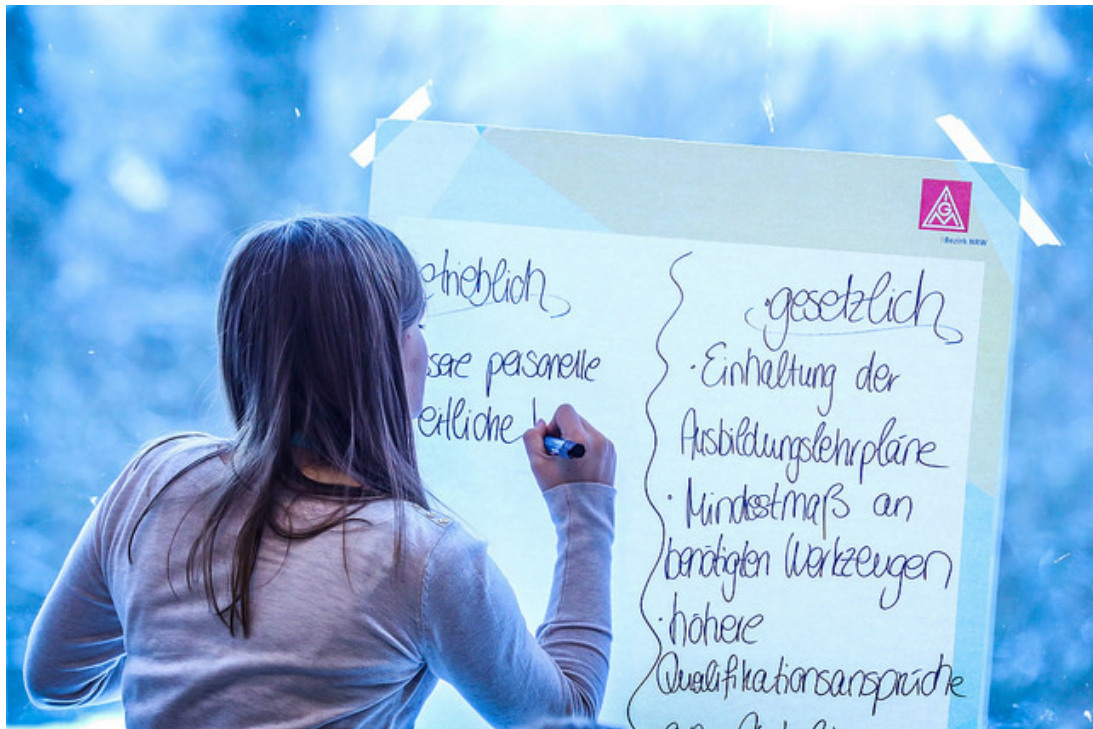 IGM
Bezirk NRW
etrieblich
gesetzlich
ssere personelle
eitliche
· Einhaltung der
Ausbildungslehrpläne
· Mindestmaß an
benötigten Werkzeugen
· höhere
Qualifikationsansprüche